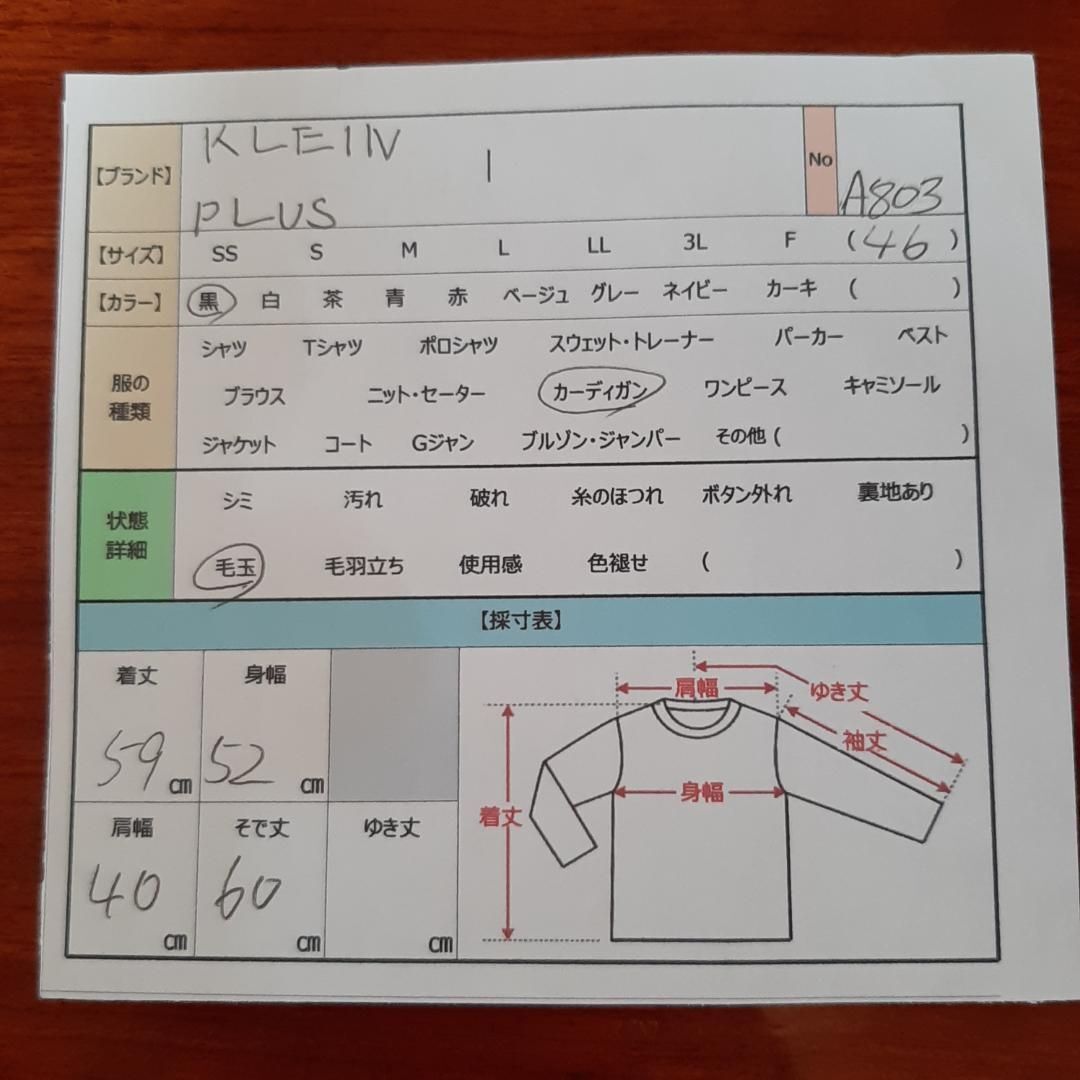 【ブランド】 KLEIN PLUS No A803
【サイズ】 SS S M L LL 3L F (46)
【カラー】 黒 白 茶 青 赤 ベージュ グレー ネイビー カーキ ( )
服の種類
シャツ Tシャツ ポロシャツ スウェット・トレーナー パーカー ベスト
ブラウス ニット・セーター カーディガン ワンピース キャミソール
ジャケット コート Gジャン ブルゾン・ジャンパー その他 ( )
状態詳細
シミ 汚れ 破れ 糸のほつれ ボタン外れ 裏地あり
毛玉 毛羽立ち 使用感 色褪せ ( )
【採寸表】
着丈 身幅
59 cm 52 cm
肩幅 そで丈 ゆき丈
40 cm 60 cm cm
肩幅
ゆき丈
袖丈
身幅
着丈